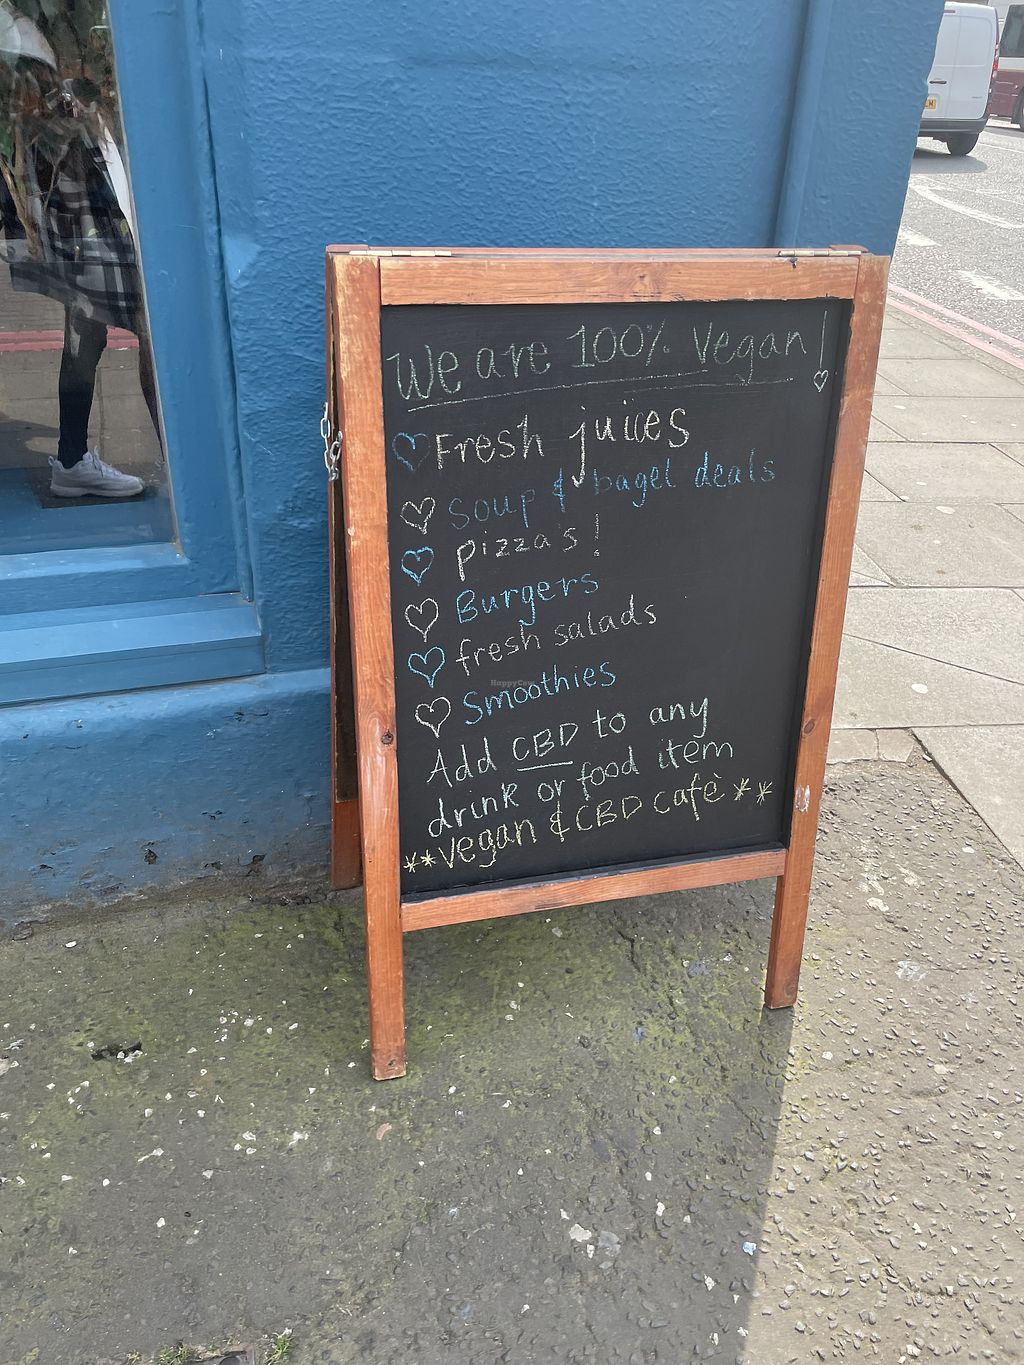 We are 100% Vegan!
Fresh juices
Soup & bagel deals
pizza's!
Burgers
fresh salads
Smoothies
Add CBD to any
drink or food item
**Vegan & CBD Cafè**
HappyCow